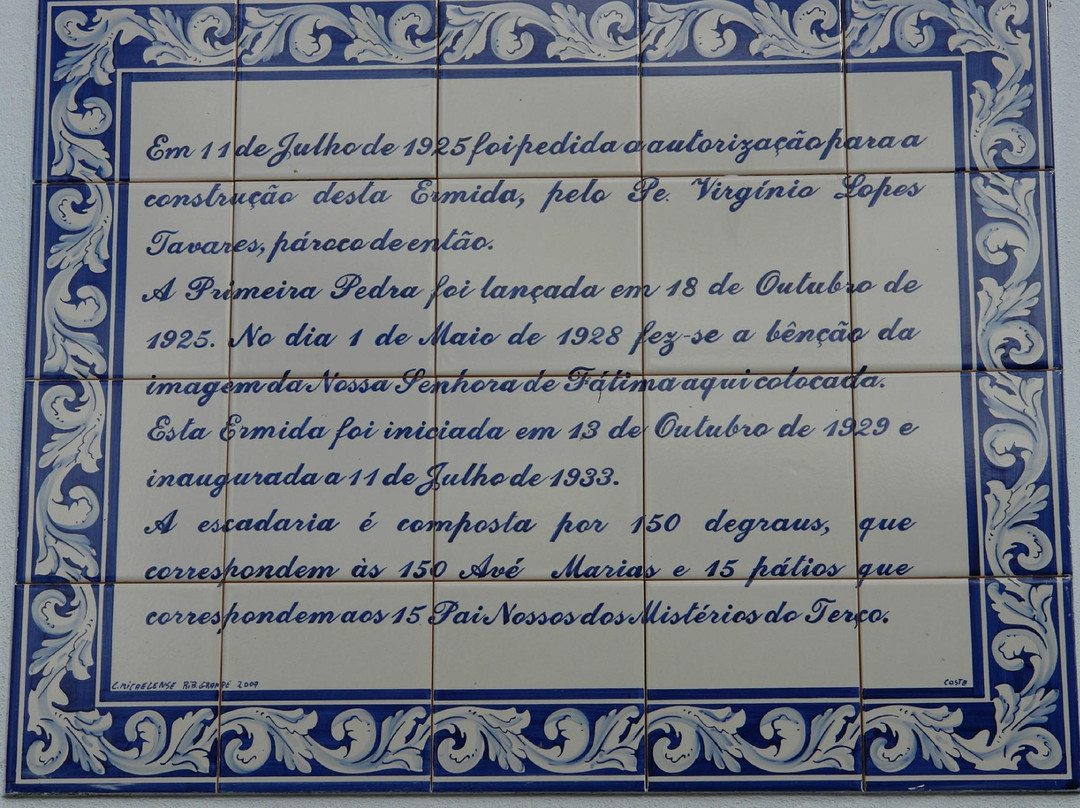 Em 11 de Julho de 1925 foi pedida a autorização para a
construção desta Ermida, pelo Pe. Virgínio Lopes
Tavares, pároco de então.
A Primeira Pedra foi lançada em 18 de Outubro de
1925. No dia 1 de Maio de 1928 fez-se a bênção da
imagem da Nossa Senhora de Fátima aqui colocada.
Esta Ermida foi iniciada em 13 de Outubro de 1929 e
inaugurada a 11 de Julho de 1933.
A escadaria é composta por 150 degraus, que
correspondem às 150 Avé Marias e 15 pátios que
correspondem aos 15 Pai Nossos dos Mistérios do Terço.
C. MICAELENSE RIB. GRANDE 2009
COSTA